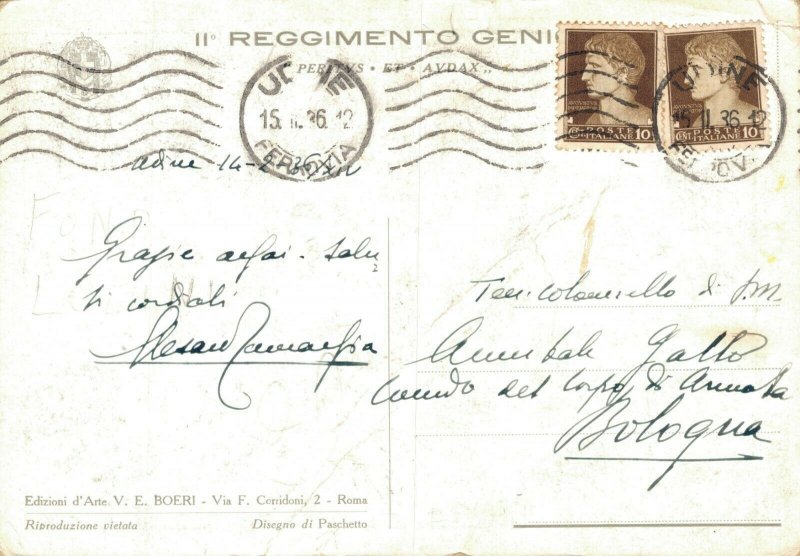 II° REGGIMENTO GENIO
PERITVS • ET • AVDAX „
UDINE
15.II.36.12
FERROVIA
UDINE
15.II.36.12
FERROV
POSTE
ITALIANE
CENT 10
POSTE
ITALIANE
CENT 10
Udine 14-2-36 XIV
Grazie assai - Salu
ti cordiali
Ten. Colonnello di S.M.
Annibale Gallo
Comando del Corpo di Armata
Bologna
Edizioni d'Arte V. E. BOERI - Via F. Corridoni, 2 - Roma
Riproduzione vietata
Disegno di Paschetto